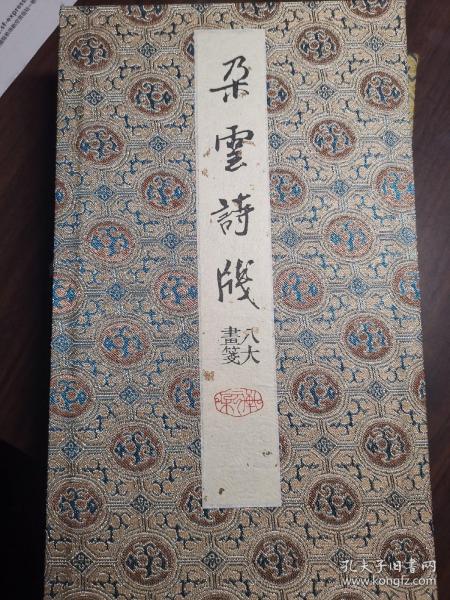 朵雲詩牋
八大
畫箋
孔夫子旧书网
www.kongfz.com